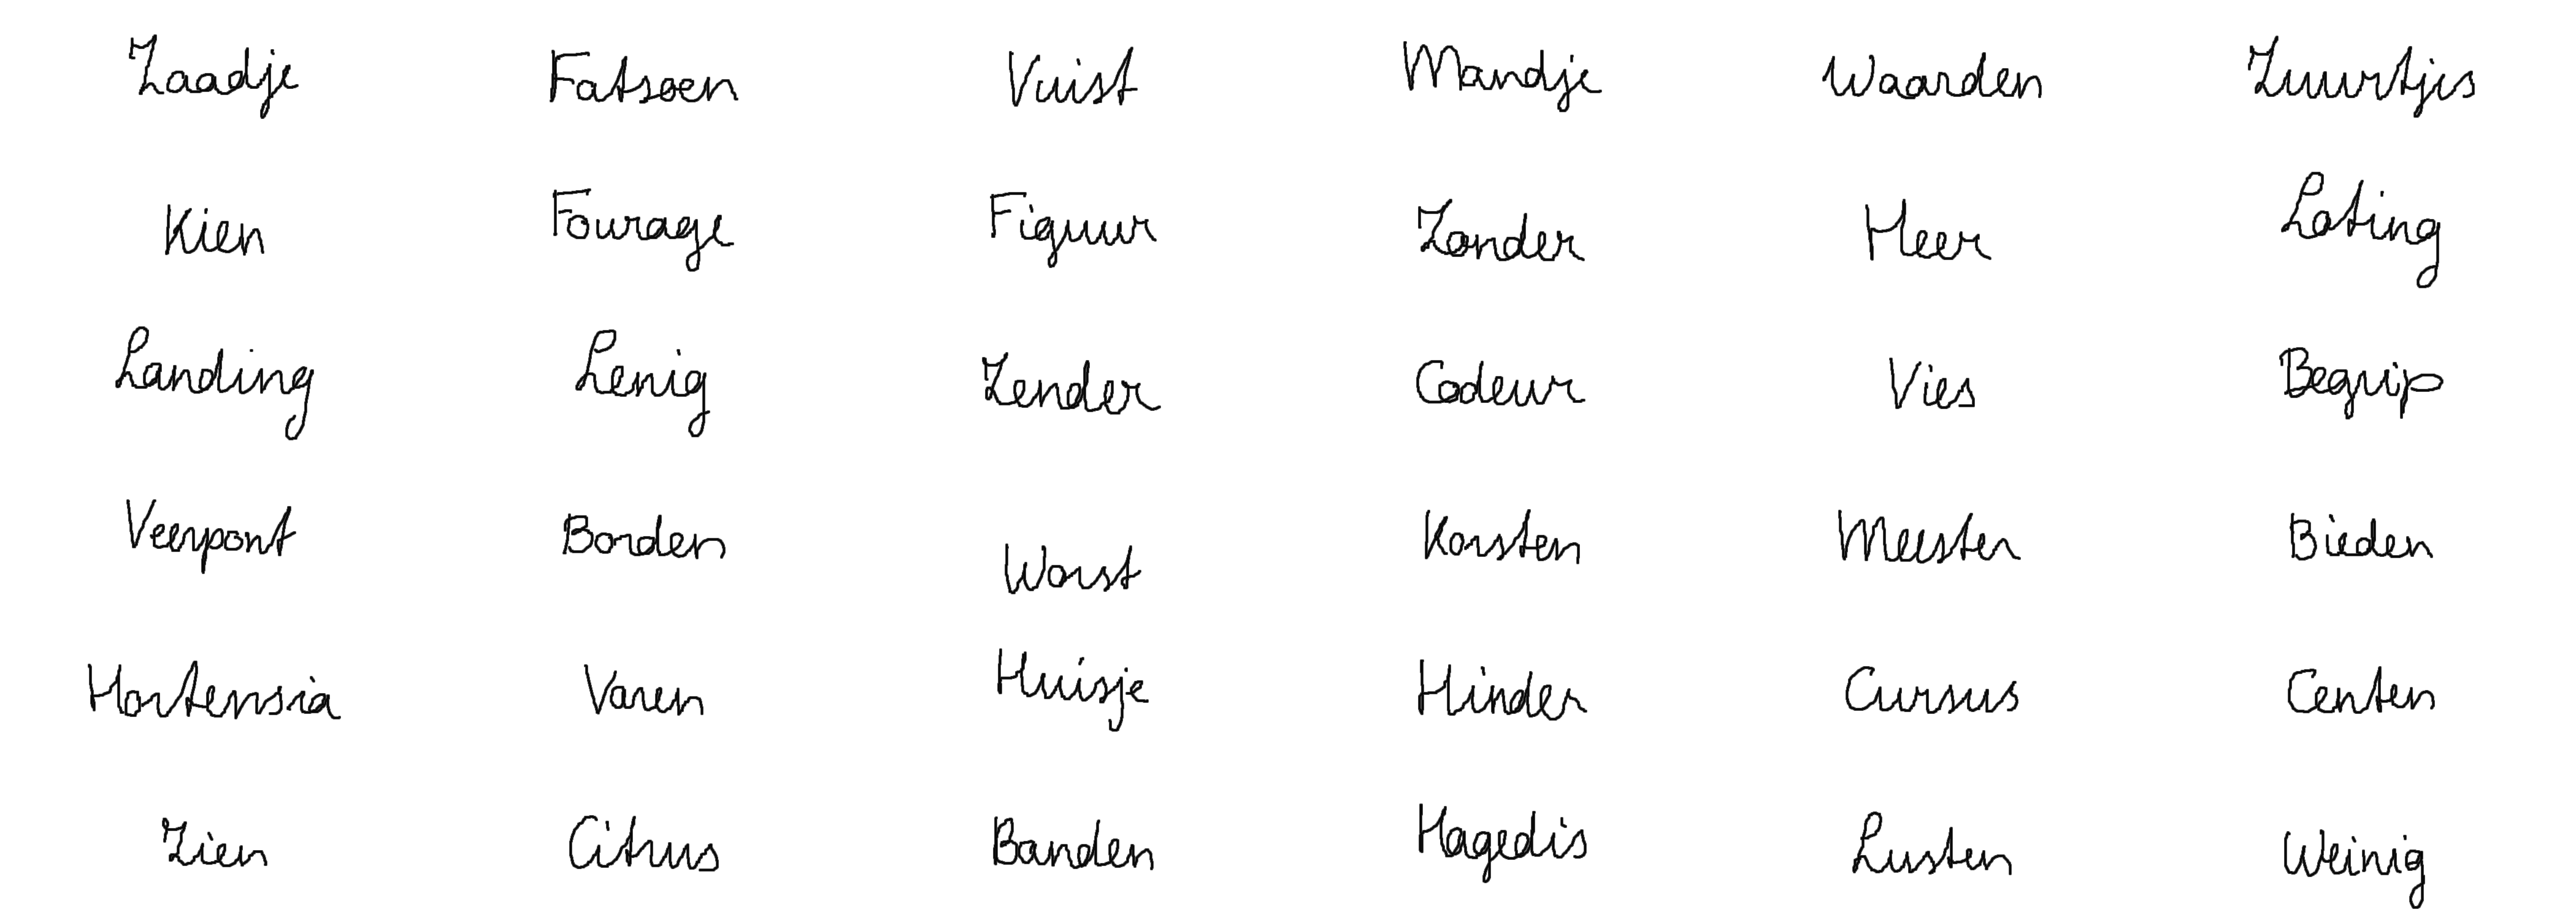 Zaadje Fatsoen Vuist Mandje Waarden Zuurtjes
Kien Fourage Figuur Zonder Heer Loting
Landing Lenig Zender Codeur Vies Begrip
Veerpont Borden Worst Korsten Meester Bieden
Hortensia Varen Huisje Hinder Cursus Centen
Zien Citrus Banden Hagedis Lusten Weinig